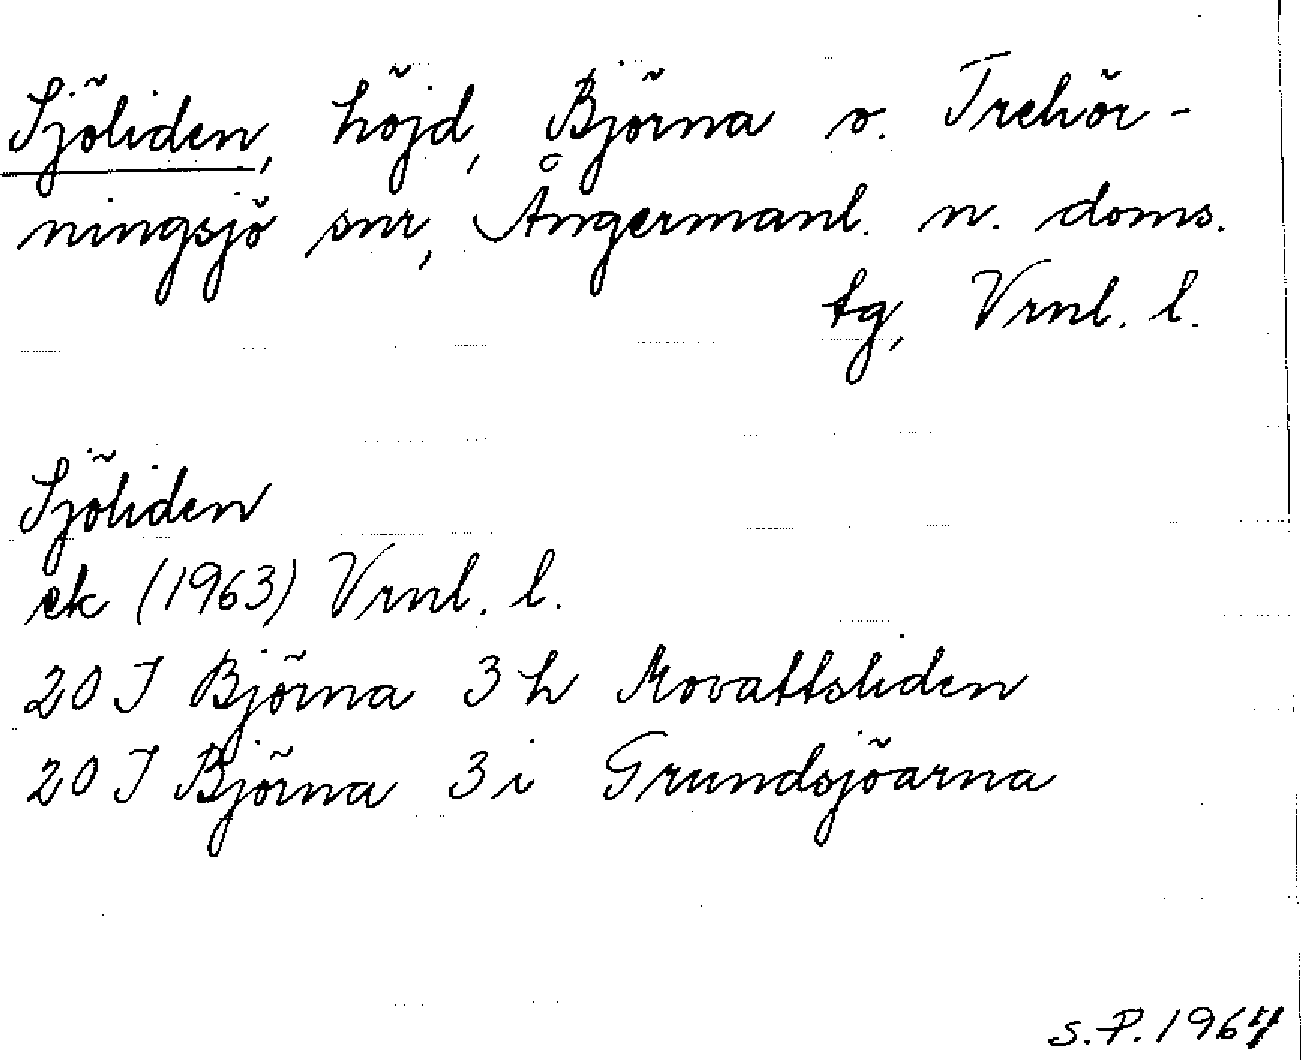 Sjöliden, höjd, Björna o. Trehör-
ningsjö snr, Ångermanl. n. doms.
tg, Vrnl. l.
Sjöliden
ek (1963) Vrnl. l.
20 J Björna 3 h Movattsliden
20 J Björna 3 i Grundsjöarna
S.P. 1964